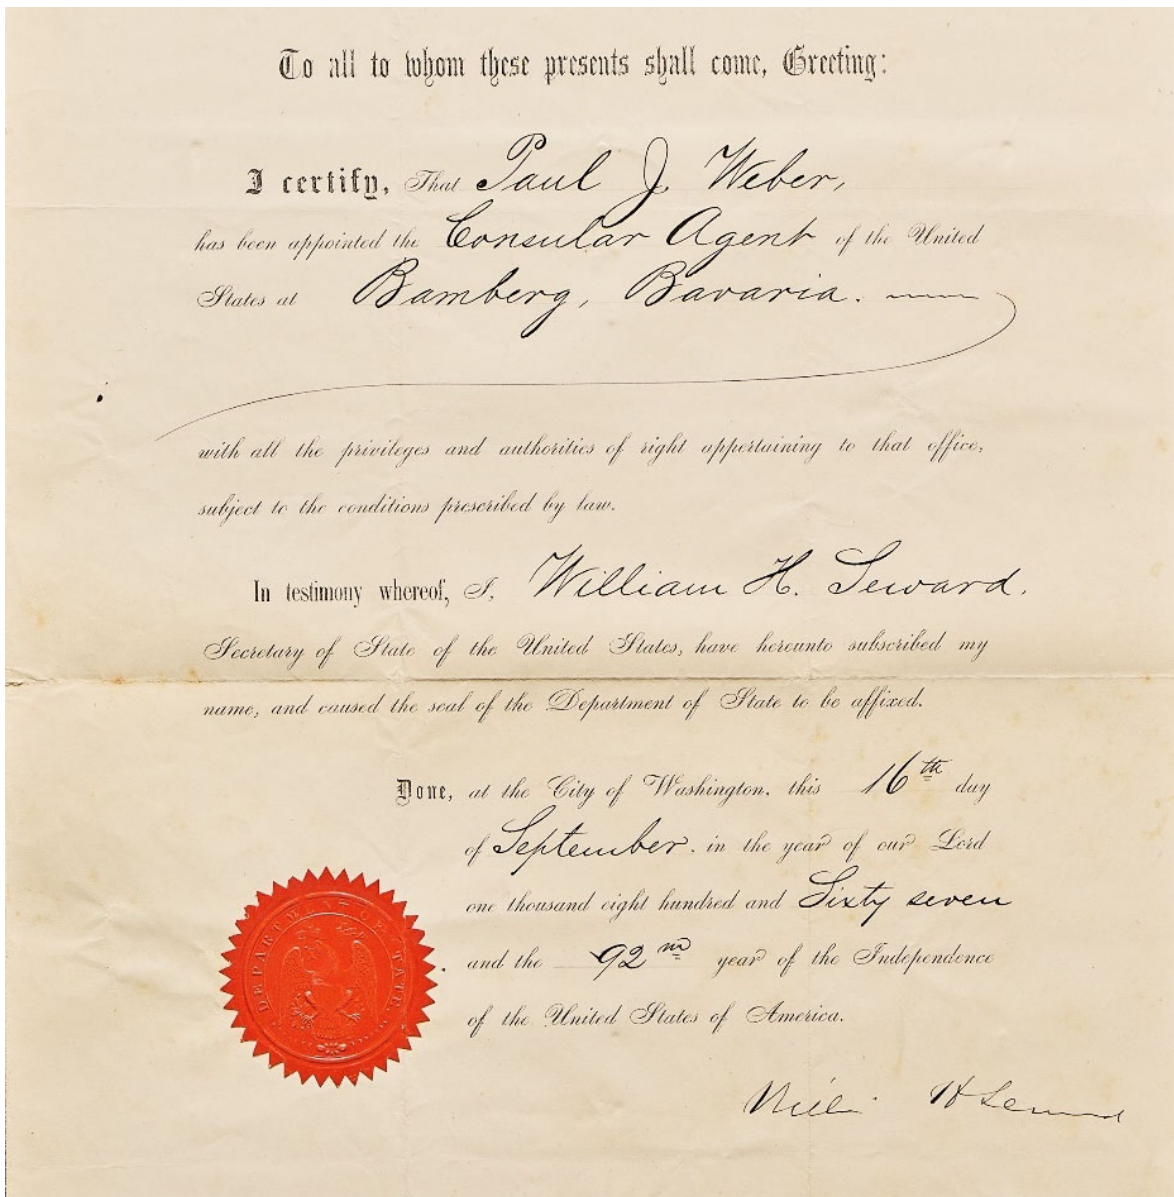 To all to whom these presents shall come, Greeting:
I certify, That Paul J. Weber,
has been appointed the Consular Agent of the United
States at Bamberg, Bavaria.
with all the privileges and authorities of right appertaining to that office,
subject to the conditions prescribed by law.
In testimony whereof, I, William H. Seward,
Secretary of State of the United States, have hereunto subscribed my
name, and caused the seal of the Department of State to be affixed.
Done, at the City of Washington, this 16th day
of September. in the year of our Lord
one thousand eight hundred and Sixty seven
and the 92nd year of the Independence
of the United States of America.
DEPARTMENT OF STATE.
William H Seward